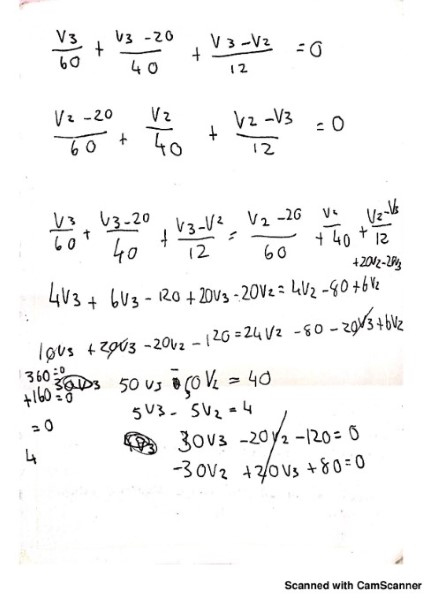 V3/60 + V3-20/40 + V3-V2/12 = 0
V2-20/60 + V2/40 + V2-V3/12 = 0
V3/60 + V3-20/40 + V3-V2/12 = V2-20/60 + V2/40 + V2-V3/12
+20V2-20V3
4V3 + 6V3 - 120 + 20V3 - 20V2 = 4V2 - 80 + 6V2
10V3 + 20V3 - 20V2 - 120 = 24V2 - 80 - 20V3 + 6V2
360=0
+160=0
50V3 - 50V2 = 40
= 0
5V3 - 5V2 = 4
4
30V3 - 20V2 - 120 = 0
-30V2 + 20V3 + 80 = 0
Scanned with CamScanner